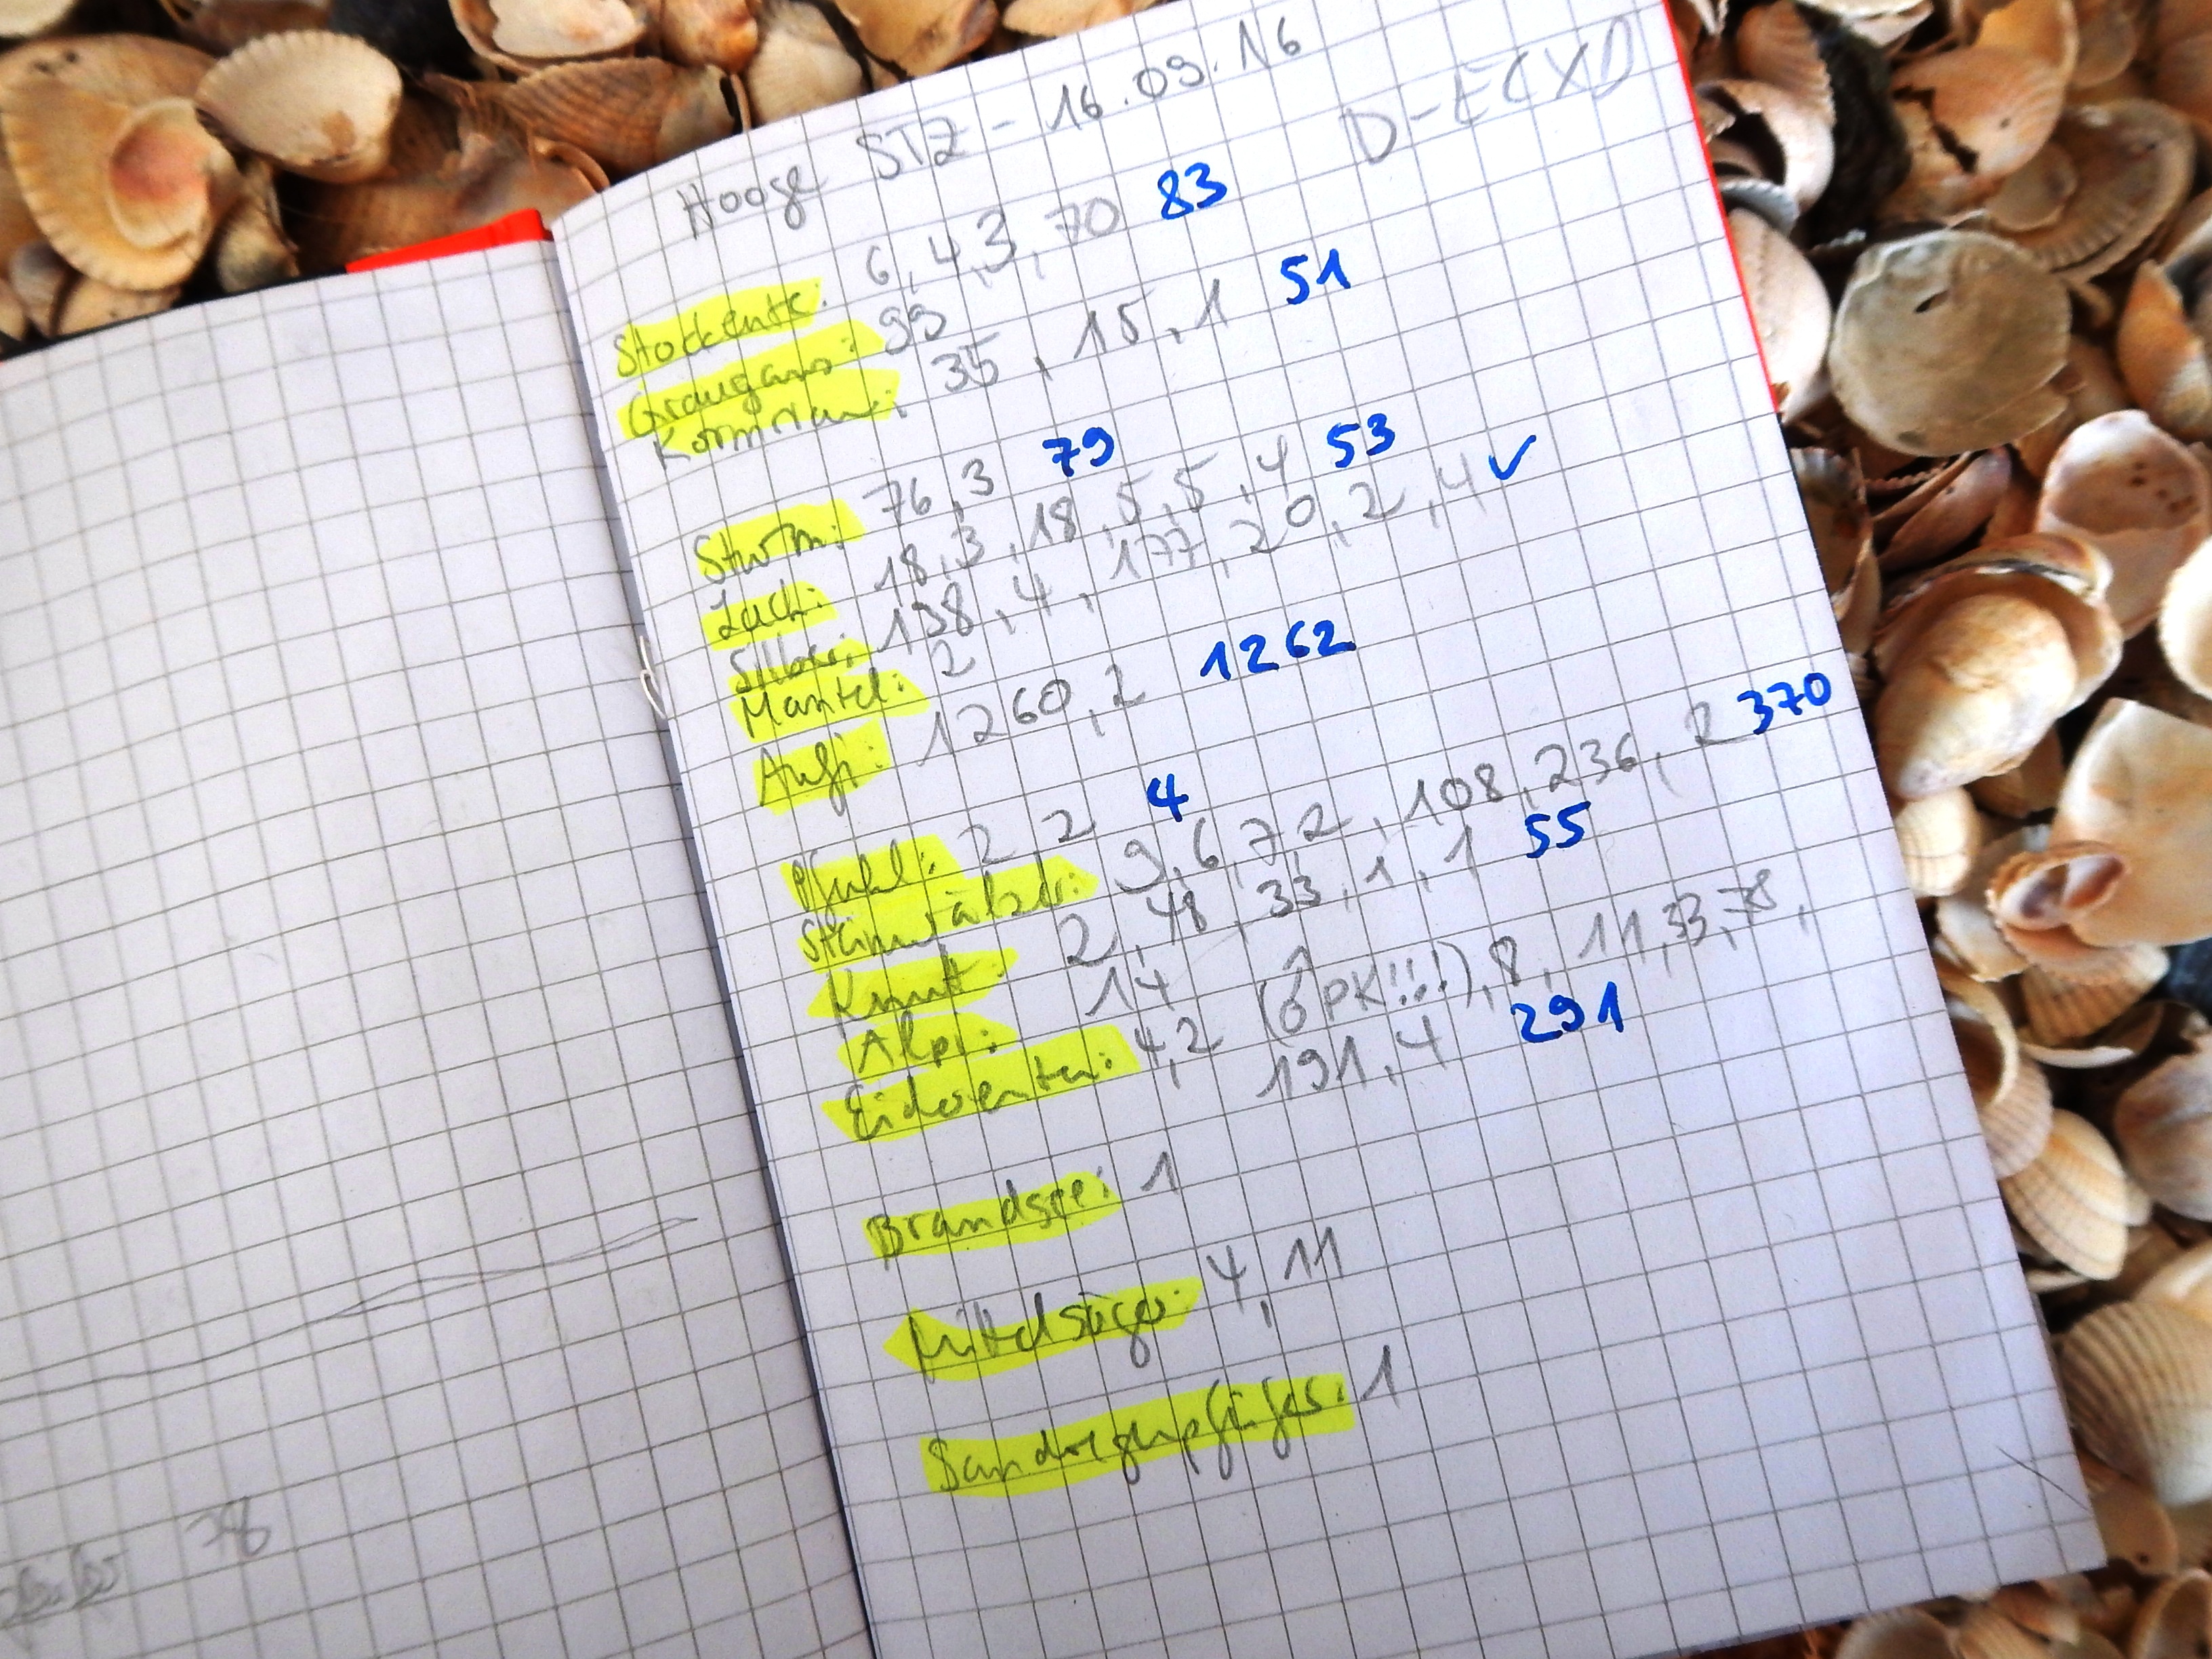 Hooge STZ - 16.09.16
D-ECXD
Stockente: 6, 4, 3, 70 83
Graugans: 99
Kormoran: 35, 15, 1 51
Sturm: 76, 3 79
Lach: 18, 3, 18, 5, 5, 4 53
Silber: 138, 4, 177, 20, 2, 4 ✓
Mantel: 2
Aufi: 1260, 2 1262
Pfuhl: 2 2 4
Steinwälzer: 9, 6, 7 2, 108, 236, 2 370
Knutt: 2, 48, 33, 1, 1 55
Alpi: 14
Eiderenten: 4, 2 (PK!!!), 8, 11, 33, 78,
191, 4 291
Brandsee: 1
Mittelsäger: 4, 11
Sandregenpfeifer: 1
78